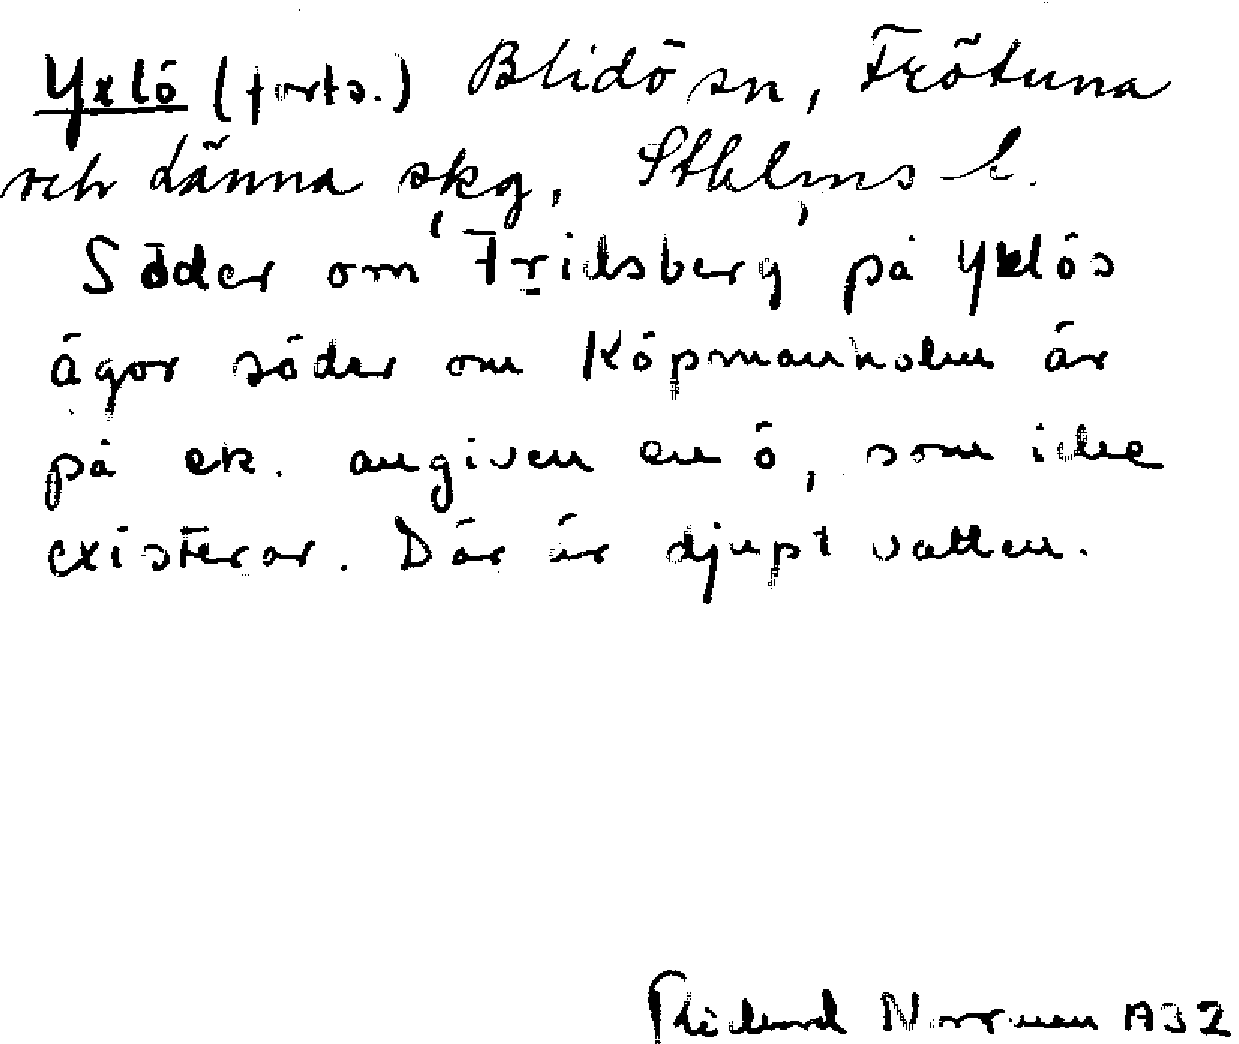 Yxlö (forts.) Blidö sn, Frötuna
och Länna skg, Sthlms l.
Söder om Fridsberg på Yxlös
ägor söder om Köpmanholm är
på ek. angiven en ö, som icke
existerar. Där är djupt vatten.
Rickard Norrman 1932